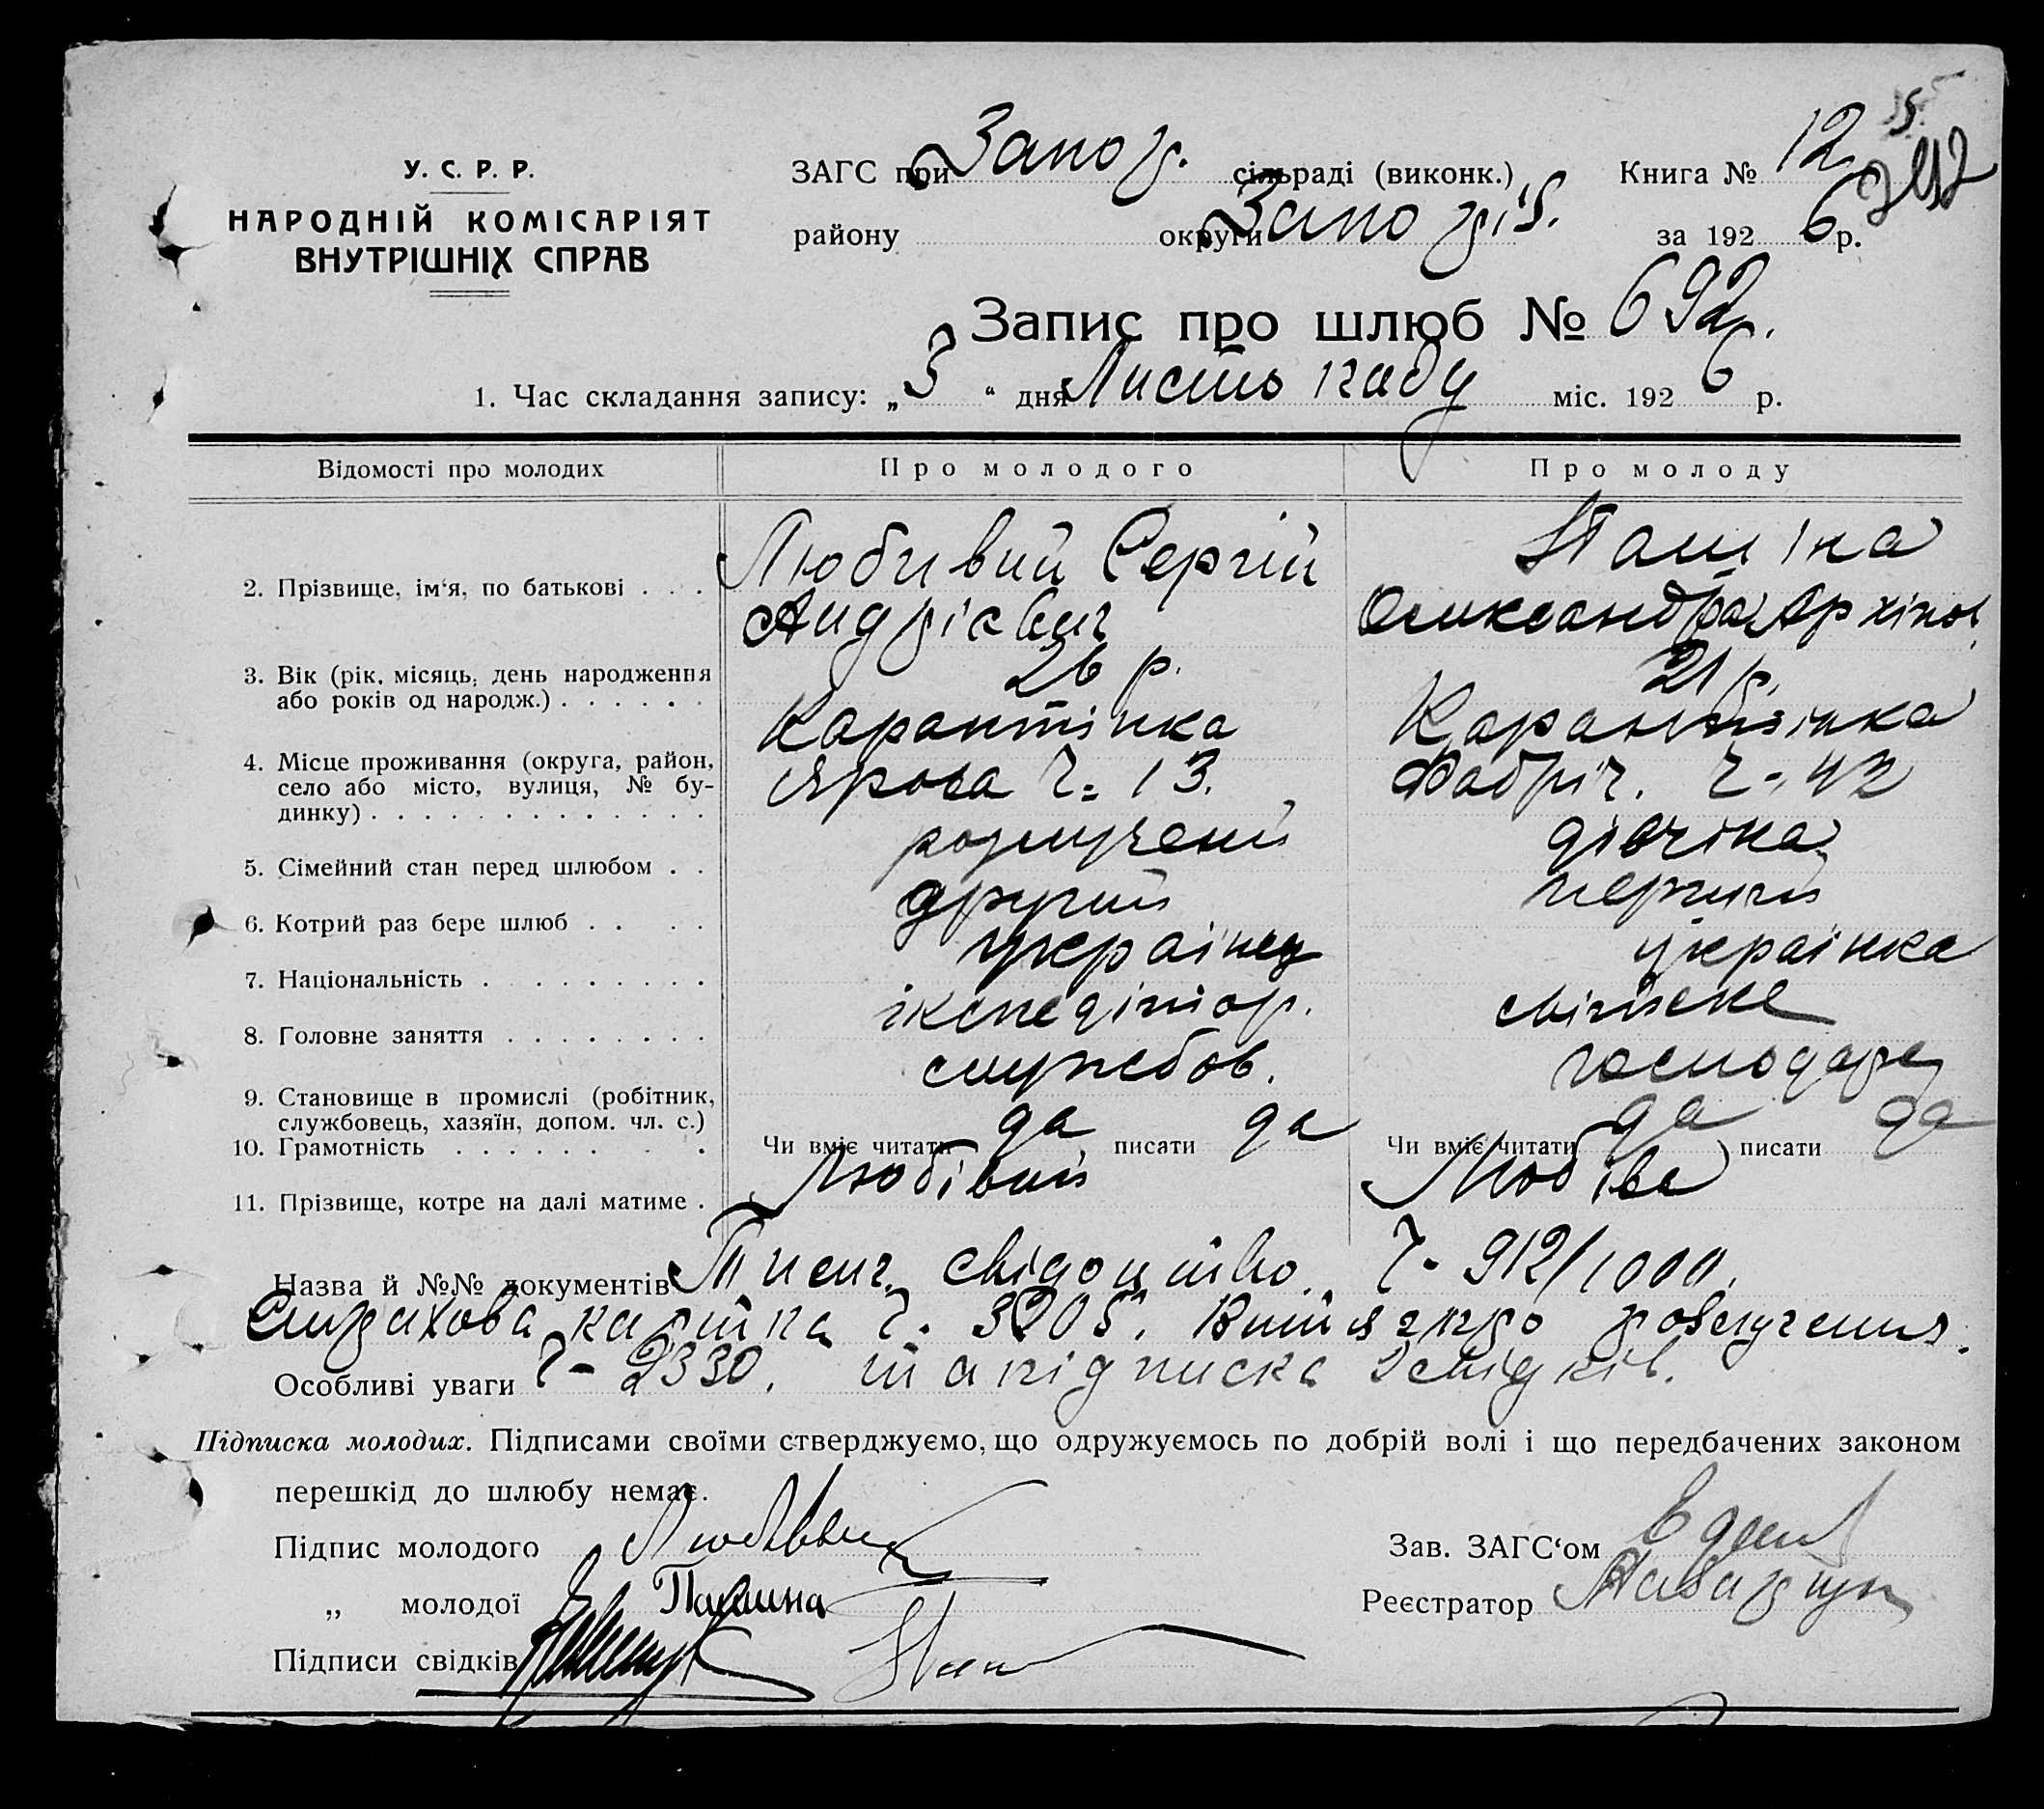 У. С. Р. Р.
НАРОДНІЙ КОМІСАРІЯТ
ВНУТРІШНІХ СПРАВ
ЗАГС при Запор. сільраді (виконк.) Книга № 12
району округи Запоріз. за 192 6 р.
292
Запис про шлюб № 692.
1. Час складання запису: „ 3 “ дня Листопаду міс. 192 6 р.
Відомості про молодих Про молодого Про молоду
2. Прізвище, ім‘я, по батькові . . . Любивий Сергій Пашіна
Андрієвич Олександра Архіпов.
3. Вік (рік, місяць, день народження 26 р. 21 р.
або років од народж.) . . . . . .
4. Місце проживання (округа, район, Карантінка Карантінка
село або місто, вулиця, № бу- Ярова ч= 13. Фабріч. ч- 42
динку) . . . . . . . . . . . . .
5. Сімейний стан перед шлюбом . . розлучений дівчина
6. Котрий раз бере шлюб . . . . другий перший
7. Національність . . . . . . . . . українец українка
8. Головне заняття . . . . . . . . експедітор. хатнє
9. Становище в промислі (робітник, службов. господар
службовець, хазяїн, допом. чл. с.)
10. Грамотність . . . . . . . . Чи вміє читати да писати да Чи вміє читати да писати да
11. Прізвище, котре на далі матиме . Любівий Любіва
Назва й №№ документів свідоцтво ч- 912/1000.
Страхова картка ч. 3205. Витяг про розлучення
Особливі уваги ч- 2330. та підписка свідків.
Підписка молодих. Підписами своїми стверджуємо, що одружуємось по добрій волі і що передбачених законом
перешкід до шлюбу немає.
Підпис молодого Любивий Зав. ЗАГС‘ом
„ молодої Пашина Реєстратор
Підписи свідків